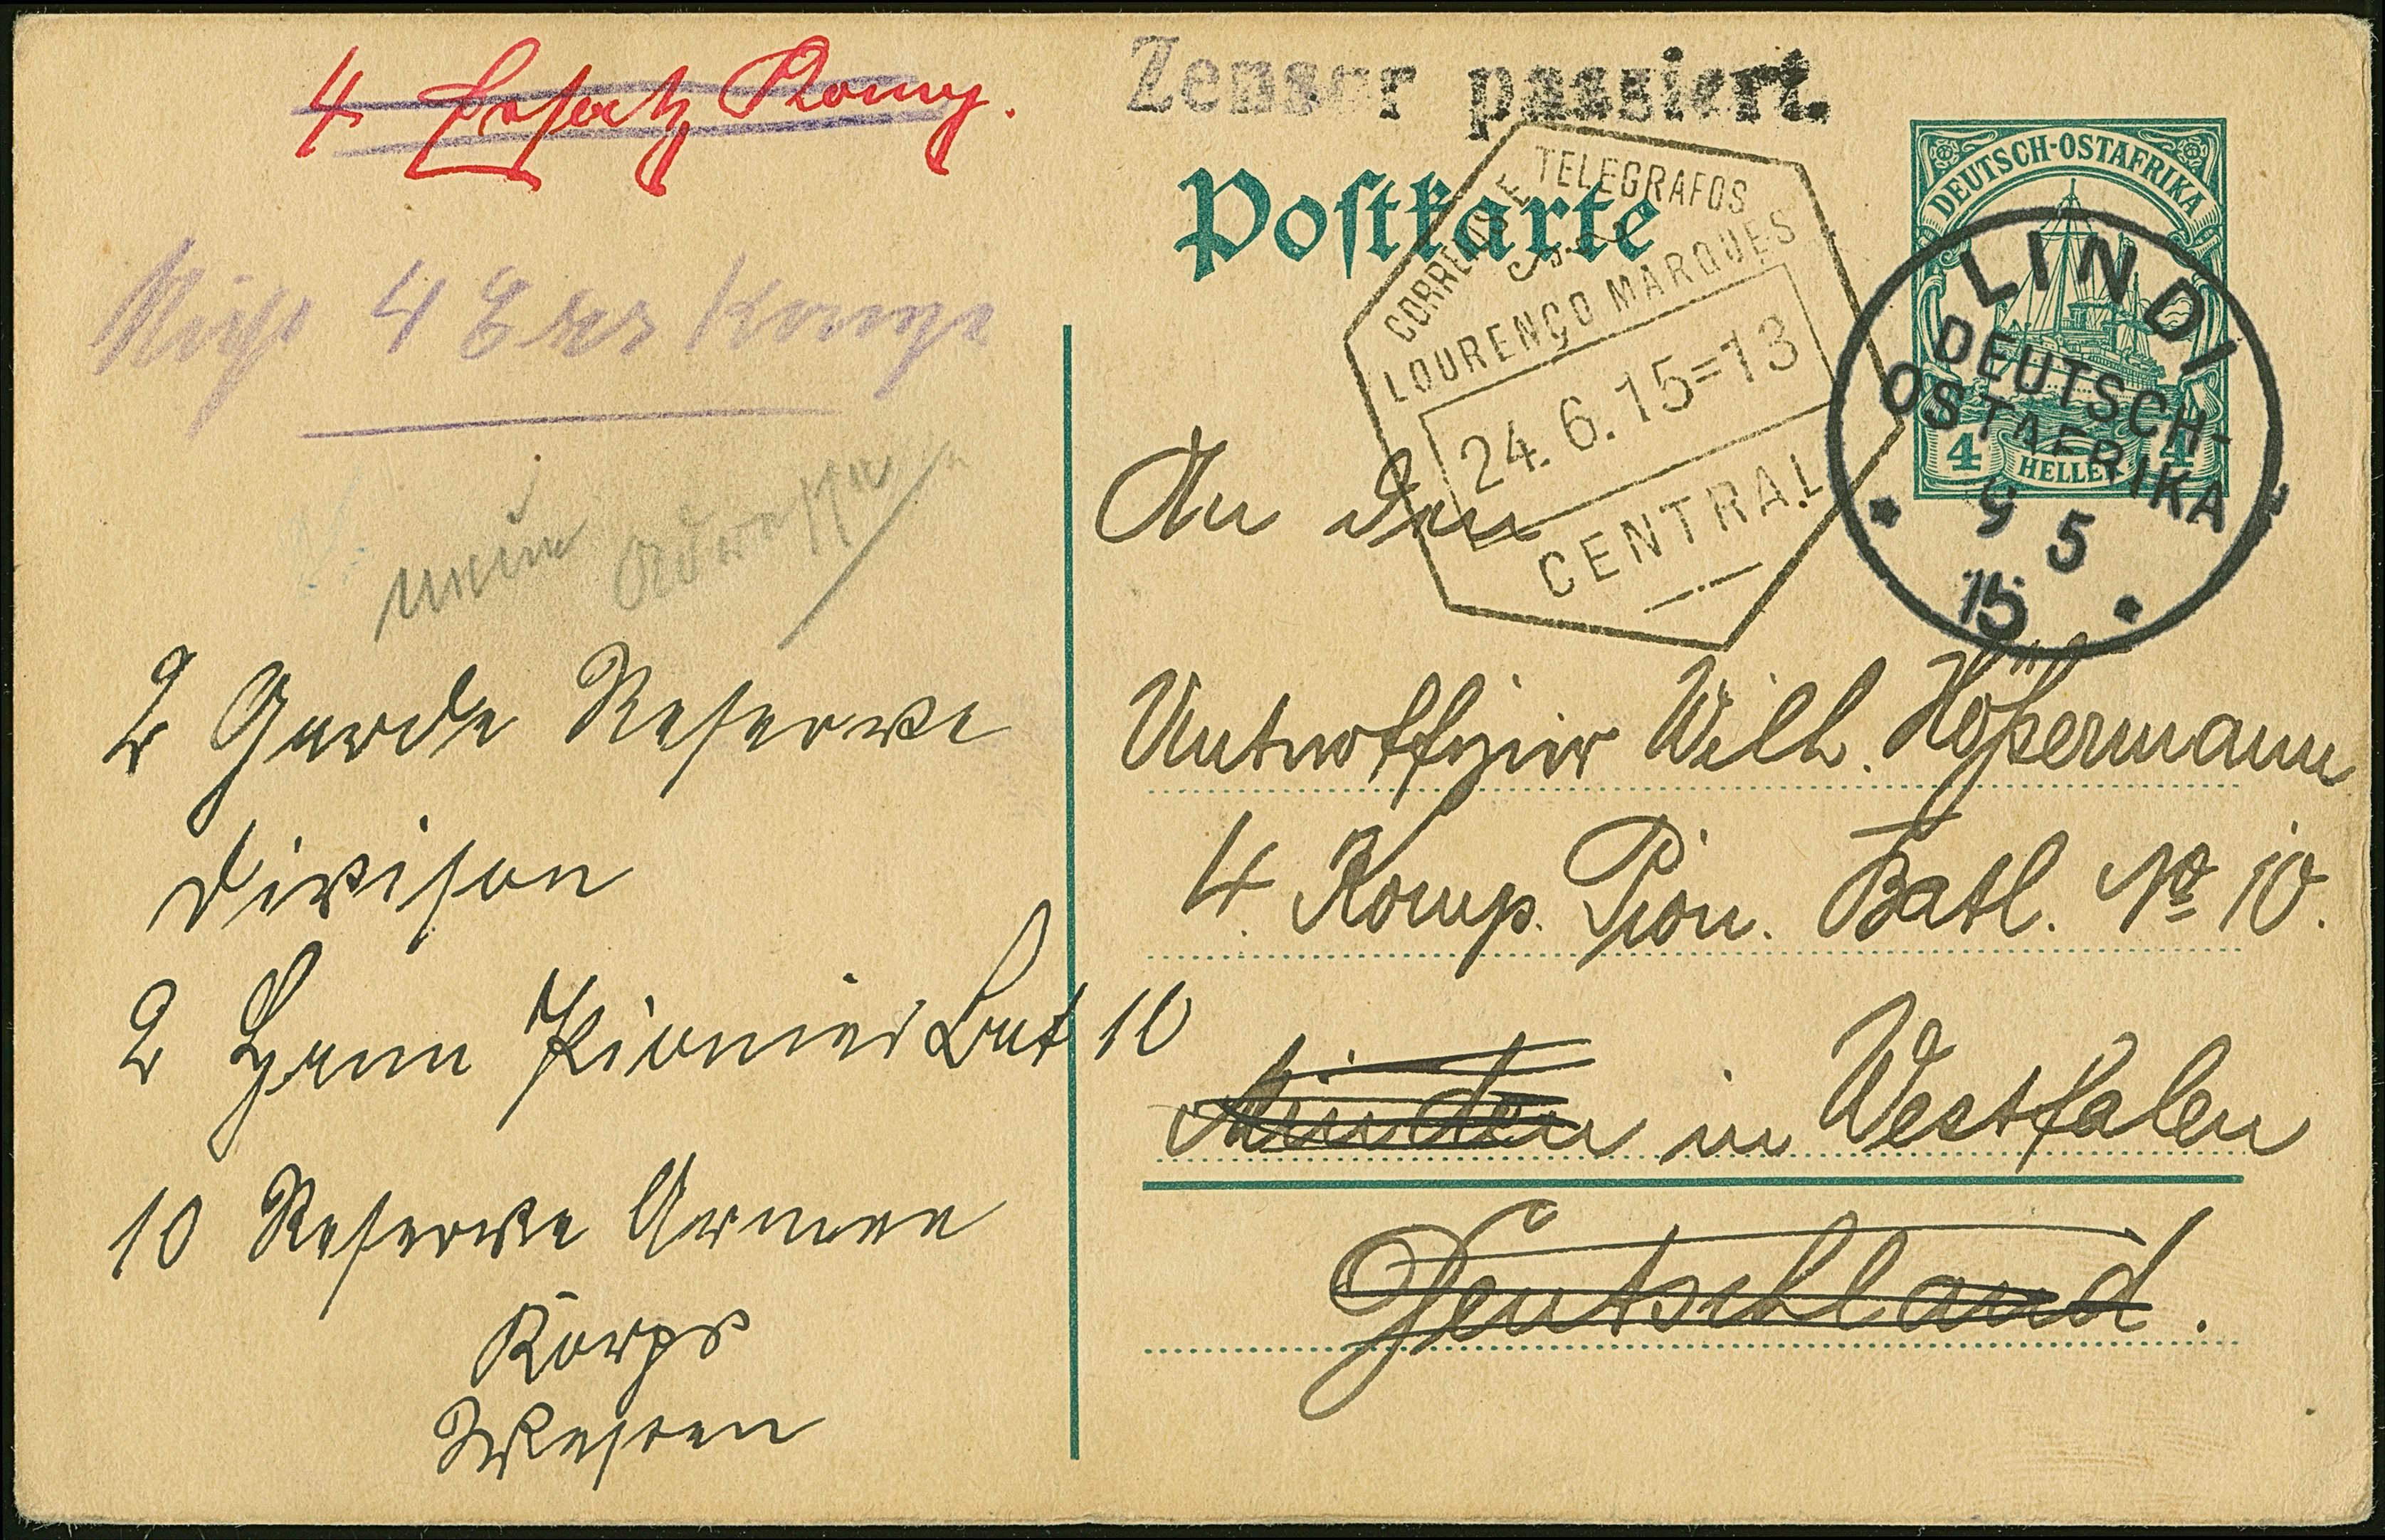 4 Ersatz Komp.
Zensur passiert.
Postkarte
DEUTSCH-OSTAFRIKA
4 HELLER 4
LINDI
DEUTSCH-
OSTAFRIKA
9 5
15
CORREIOS E TELEGRAFOS
LOURENÇO MARQUES
24.6.15=13
CENTRAL
Nicht 4 Ers Komp
neue Adresse
An den
Unteroffizier Wilh. Höpermann
4. Komp. Pion. Batl. No 10.
Minden in Westfalen
Deutschland.
2 Garde Reserve
Divison
2 Pionier Bat 10
10 Reserve Armee
Korps
Westen